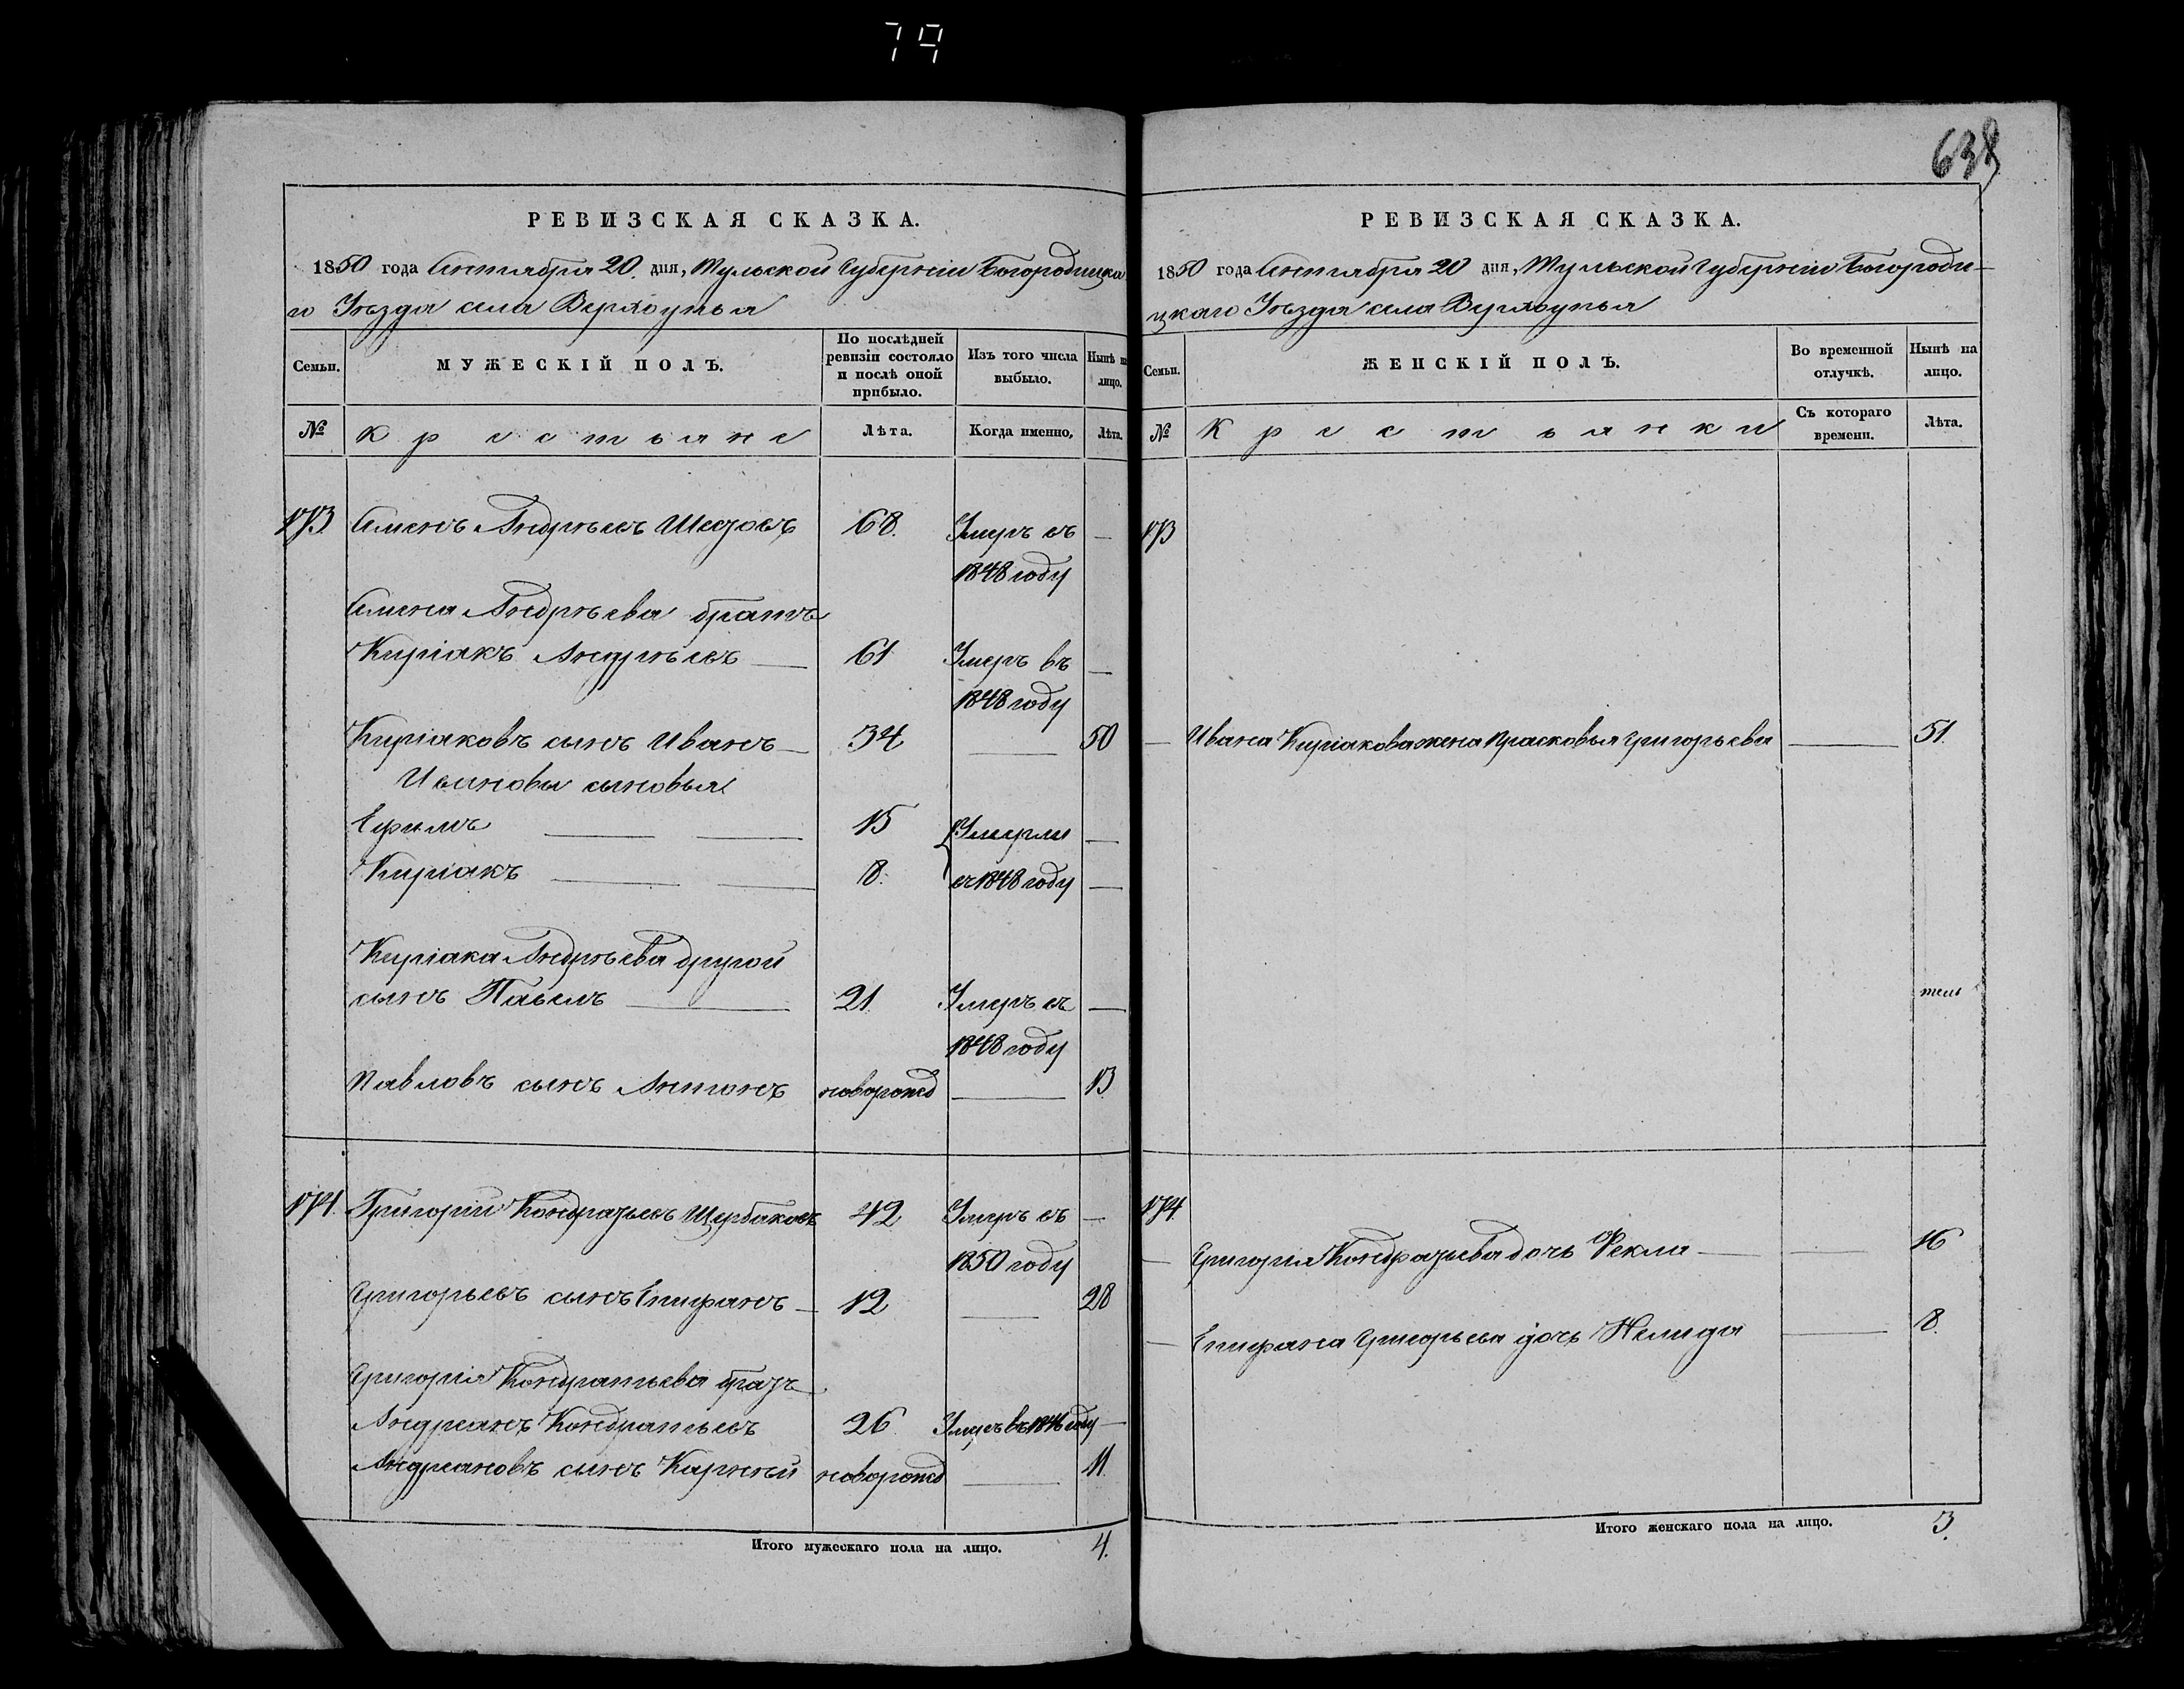 79
638
РЕВИЗСКАЯ СКАЗКА.
1850 года Сентября 20 дня, Тульской Губерніи Богородицка
го Уѣзда села Верхоупья
Семьи.
МУЖЕСКІЙ ПОЛЪ.
По послѣдней ревизіи состояло и послѣ оной прибыло.
Изъ того числа выбыло.
Нынѣ на лицо.
№
Крестьяне
Лѣта.
Когда именно.
Лѣта.
173 Семенъ Андрѣевъ 68. Умеръ въ —
1848 году
Семена Андрѣева братъ
Киріакъ Андрѣевъ — 61 Умеръ въ —
1848 году
Киріаковъ сынъ Иванъ — 34 — 50
Ивановы сыновья
Ефимъ — — 15 Умерли —
Киріакъ — — 8. въ 1848 году —
Киріака Андрѣева другой
сынъ Павелъ — 21. Умеръ въ —
1848 году
Павловъ сынъ Антонъ новорожд — 13
174. Григорій Кондратьевъ Щербаковъ 42 Умеръ въ —
1850 году
Григорьевъ сынъ Епифанъ — 12 — 28
Григорія Кондратьева братъ
Андреанъ Кондратьевъ 26 Умеръ въ 1846 году —
Андреановъ сынъ Карнѣй новорожд — 11.
Итого мужескаго пола на лицо. 4.
РЕВИЗСКАЯ СКАЗКА.
1850 года Сентября 20 дня, Тульской Губерніи Богороди-
цкаго Уѣзда села Верхоупья
Семьи.
ЖЕНСКІЙ ПОЛЪ.
Во временной отлучкѣ.
Нынѣ на лицо.
№
Крестьянки
Съ котораго времени.
Лѣта.
173
— Ивана Киріакова жена Прасковья Григорьева — 51.
174.
— Григорія Кондратьева дочь Фекла — — 16
— Епифана Григорьева дочь — 8.
Итого женскаго пола на лицо. 3.